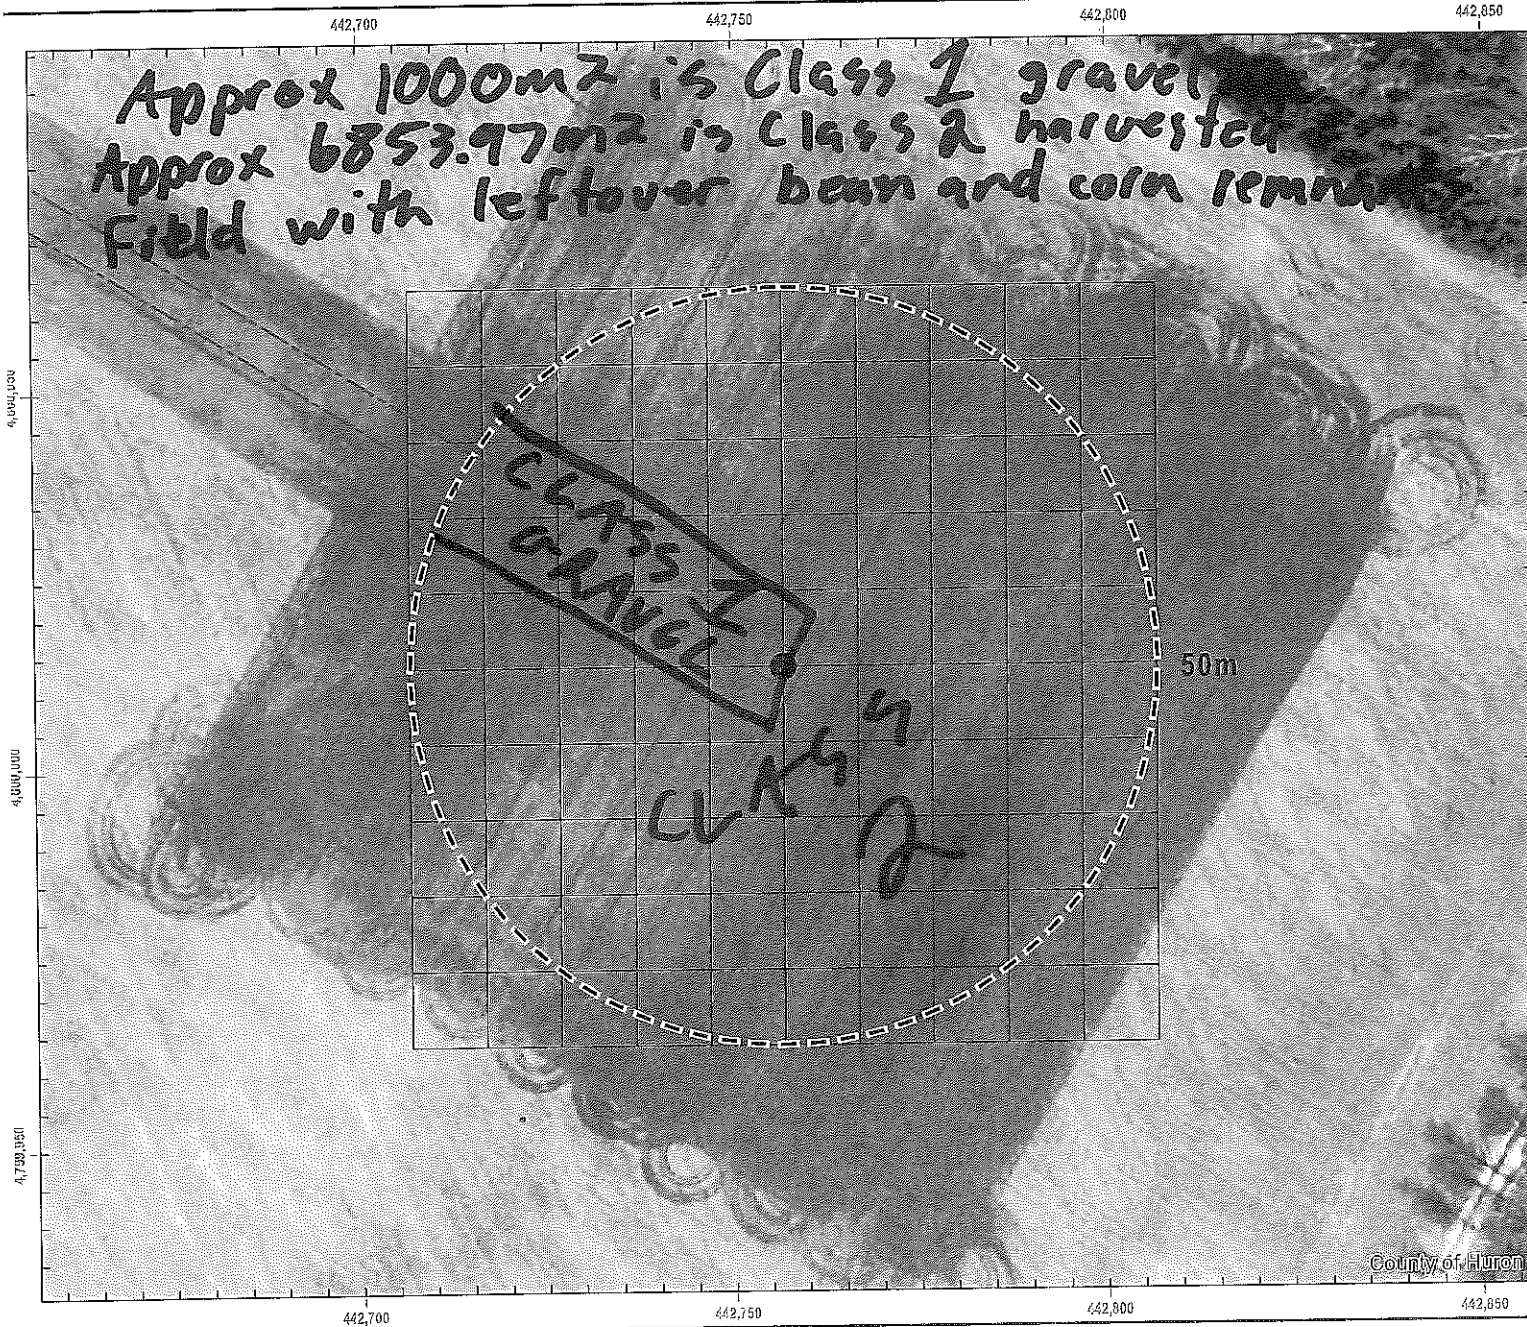 442,700 442,750 442,800 442,850
Approx 1000m2 is Class 1 gravel
Approx 6853.97m2 is Class 2 harvested
Field with leftover bean and corn
4,800,050
CLASS 1
GRAVEL
50m
CLASS 2
4,800,000
4,799,950
County of Huron
442,700 442,750 442,800 442,850